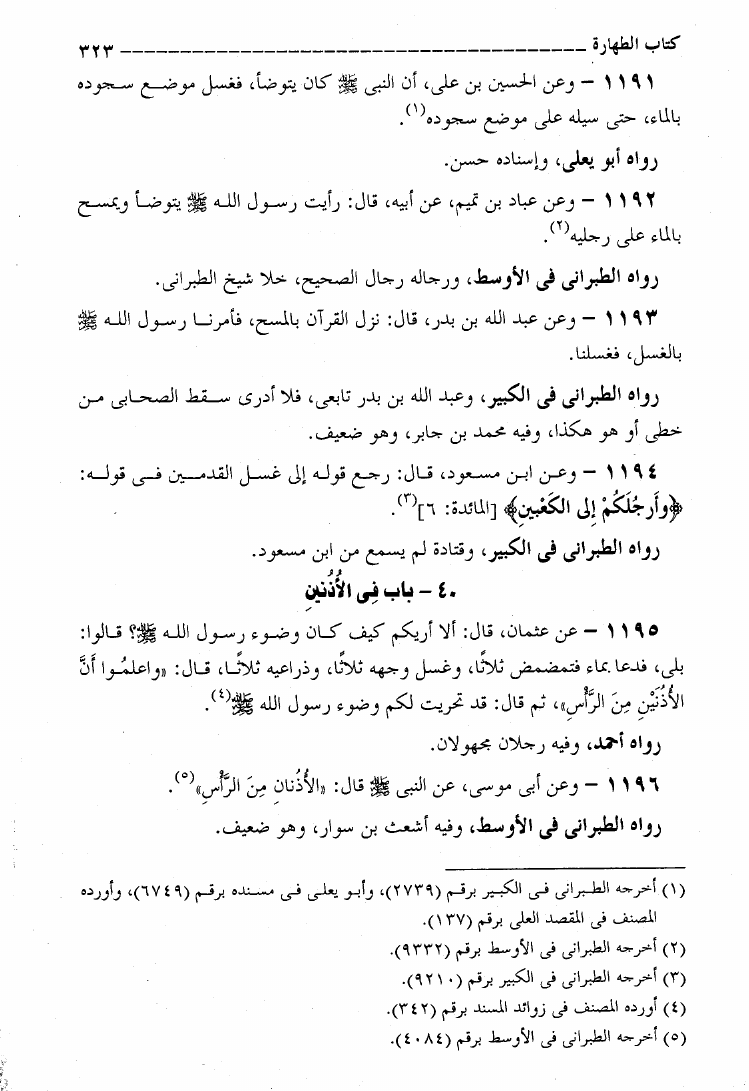 كتاب الطهارة ــــــــــــــــــــــــــــــــــــــــ ٣٢٣
١١٩١ – وعن الحسين بن على، أن النبى ﷺ كان يتوضأ، فغسل موضع سجوده
بالماء، حتى سيله على موضع سجوده(١).
رواه أبو يعلى، وإسناده حسن.
١١٩٢ – وعن عباد بن تميم، عن أبيه، قال: رأيت رسول الله ﷺ يتوضأ ويمسح
بالماء على رجليه(٢).
رواه الطبرانى فى الأوسط، ورجاله رجال الصحيح، خلا شيخ الطبرانى.
١١٩٣ – وعن عبد الله بن بدر، قال: نزل القرآن بالمسح، فأمرنا رسول الله ﷺ
بالغسل، فغسلنا.
رواه الطبرانى فى الكبير، وعبد الله بن بدر تابعى، فلا أدرى سقط الصحابى من
خطى أو هو هكذا، وفيه محمد بن جابر، وهو ضعيف.
١١٩٤ – وعن ابن مسعود، قال: رجع قوله إلى غسل القدمين فى قوله:
﴿وأَرجُلَكُمْ إِلى الكَعْبين﴾ [المائدة: ٦](٣).
رواه الطبرانى فى الكبير، وقتادة لم يسمع من ابن مسعود.
٤٠ – باب فِى الأُذُنَينِ
١١٩٥ – عن عثمان، قال: ألا أريكم كيف كان وضوء رسول الله ﷺ؟ قالوا:
بلى، فدعا بماء فتمضمض ثلاثًا، وغسل وجهه ثلاثًا، وذراعيه ثلاثًا، قال: «واعلمُوا أَنَّ
الأُذُنَيْنِ مِنَ الرَّأْسِ»، ثم قال: قد تحريت لكم وضوء رسول الله ﷺ(٤).
رواه أحمد، وفيه رجلان مجهولان.
١١٩٦ – وعن أبى موسى، عن النبى ﷺ قال: «الأُذُنانِ مِنَ الرَّأْسِ»(٥).
رواه الطبرانى فى الأوسط، وفيه أشعث بن سوار، وهو ضعيف.
(١) أخرجه الطبرانى فى الكبير برقم (٢٧٣٩)، وأبو يعلى فى مسنده برقم (٦٧٤٩)، وأورده
المصنف فى المقصد العلى برقم (١٣٧).
(٢) أخرجه الطبرانى فى الأوسط برقم (٩٣٣٢).
(٣) أخرجه الطبرانى فى الكبير برقم (٩٢١٠).
(٤) أورده المصنف فى زوائد المسند برقم (٣٤٢).
(٥) أخرجه الطبرانى فى الأوسط برقم (٤٠٨٤).